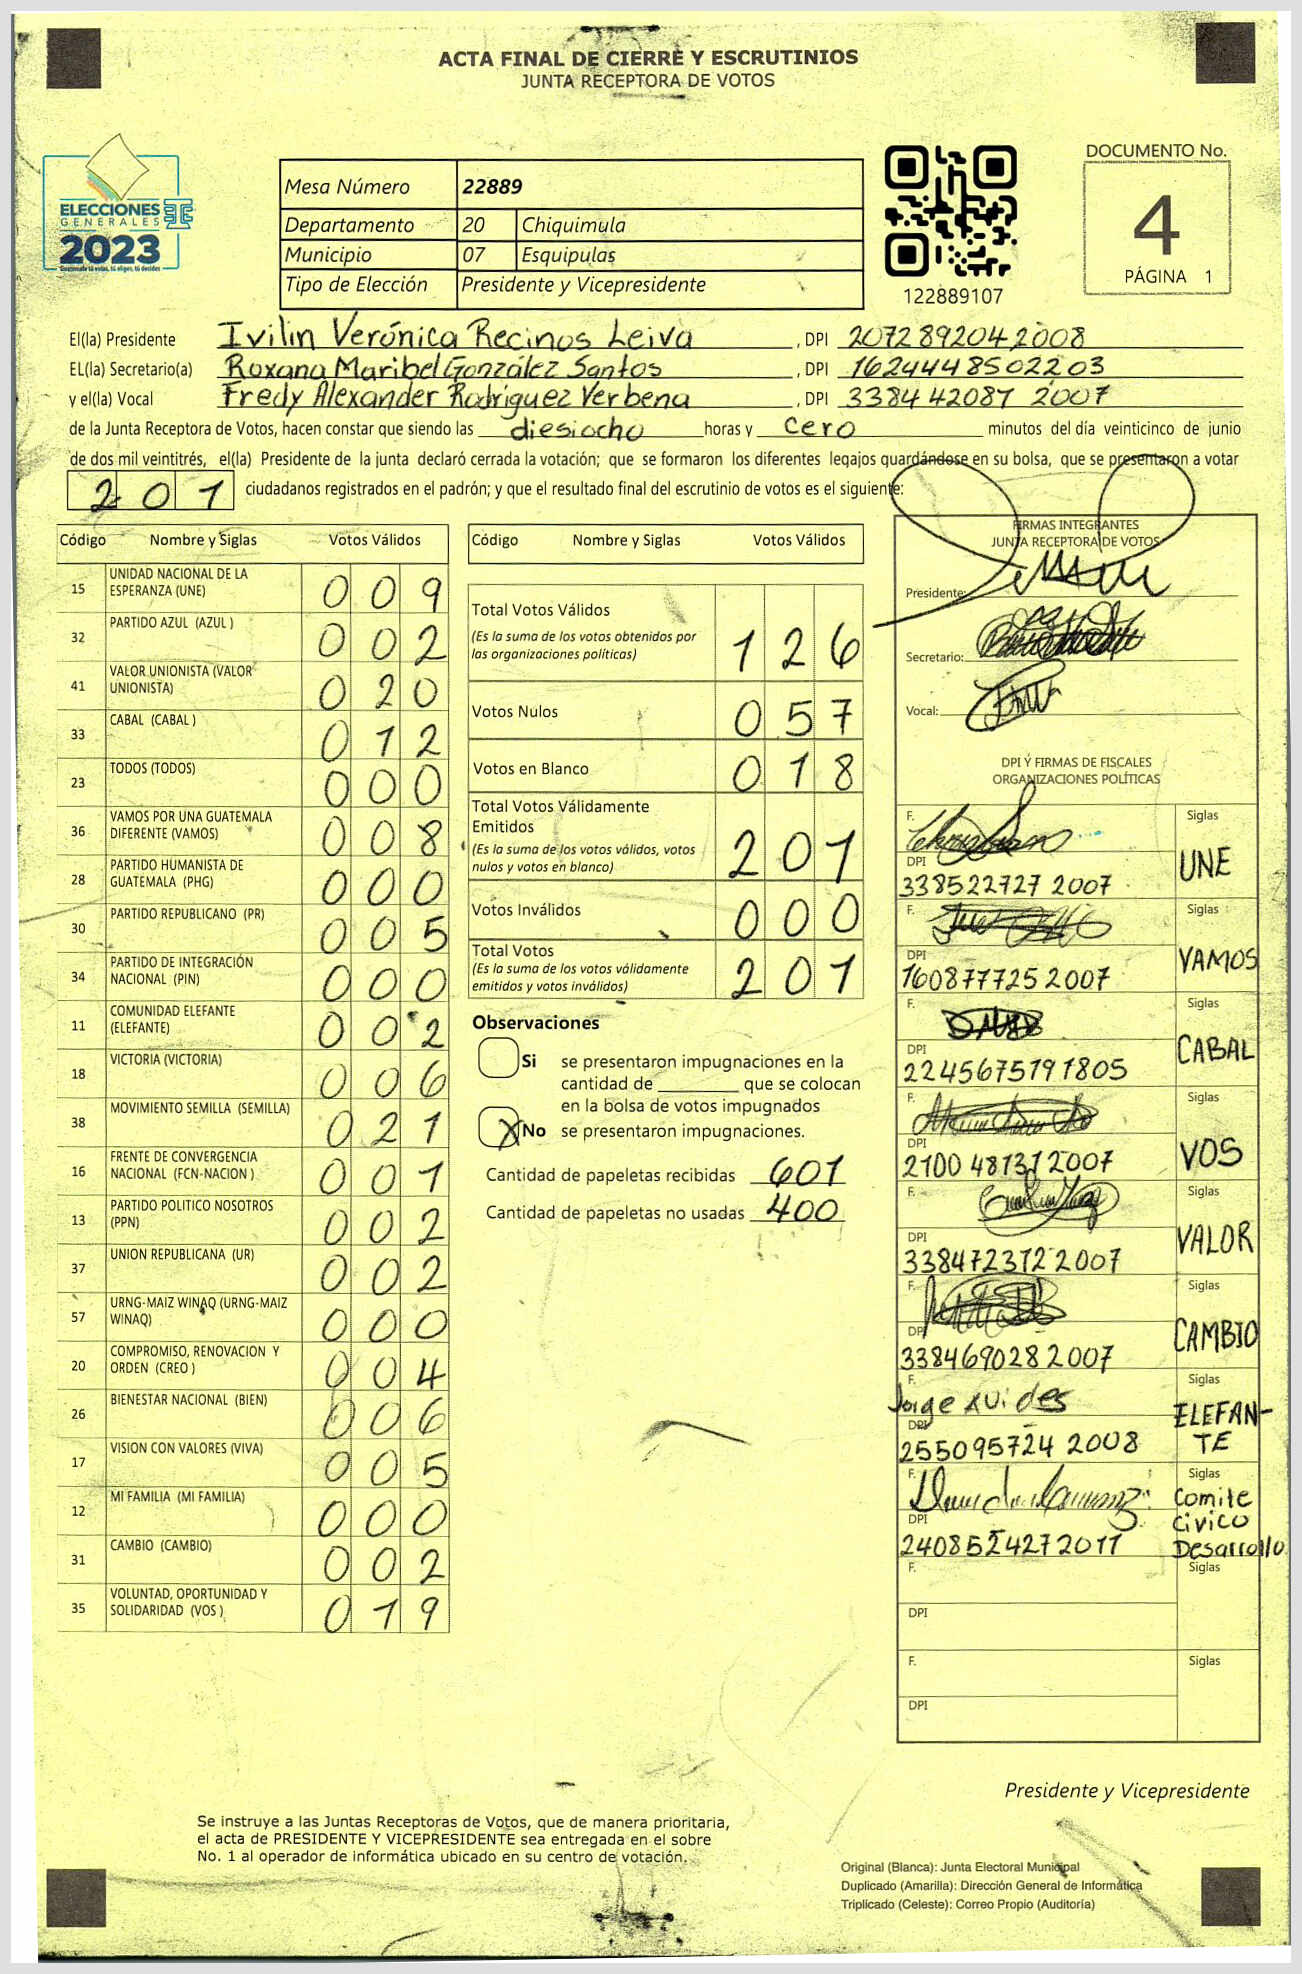 ACTA FINAL DE CIERRE Y ESCRUTINIOS
JUNTA RECEPTORA DE VOTOS
ELECCIONES
GENERALES
2023
Guatemala tú votas, tú eliges, tú decides
Mesa Número 22889
Departamento 20 Chiquimula
Municipio 07 Esquipulas
Tipo de Elección Presidente y Vicepresidente
122889107
DOCUMENTO No.
4
PÁGINA 1
El(la) Presidente Ivilin Verónica Recinos Leiva , DPI 2072892042008
EL(la) Secretario(a) Roxana Maribel González Santos , DPI 1624448502203
y el(la) Vocal Fredy Alexander Rodríguez Verbena , DPI 338442087 2007
de la Junta Receptora de Votos, hacen constar que siendo las diesiocho horas y cero minutos del día veinticinco de junio
de dos mil veintitrés, el(la) Presidente de la junta declaró cerrada la votación; que se formaron los diferentes legajos guardándose en su bolsa, que se presentaron a votar
201 ciudadanos registrados en el padrón; y que el resultado final del escrutinio de votos es el siguiente:
Código Nombre y Siglas Votos Válidos
15 UNIDAD NACIONAL DE LA ESPERANZA (UNE) 009
32 PARTIDO AZUL (AZUL ) 002
41 VALOR UNIONISTA (VALOR UNIONISTA) 020
33 CABAL (CABAL ) 012
23 TODOS (TODOS) 000
36 VAMOS POR UNA GUATEMALA DIFERENTE (VAMOS) 008
28 PARTIDO HUMANISTA DE GUATEMALA (PHG) 000
30 PARTIDO REPUBLICANO (PR) 005
34 PARTIDO DE INTEGRACIÓN NACIONAL (PIN) 000
11 COMUNIDAD ELEFANTE (ELEFANTE) 002
18 VICTORIA (VICTORIA) 006
38 MOVIMIENTO SEMILLA (SEMILLA) 021
16 FRENTE DE CONVERGENCIA NACIONAL (FCN-NACION ) 001
13 PARTIDO POLITICO NOSOTROS (PPN) 002
37 UNION REPUBLICANA (UR) 002
57 URNG-MAIZ WINAQ (URNG-MAIZ WINAQ) 000
20 COMPROMISO, RENOVACION Y ORDEN (CREO ) 004
26 BIENESTAR NACIONAL (BIEN) 006
17 VISION CON VALORES (VIVA) 005
12 MI FAMILIA (MI FAMILIA) 000
31 CAMBIO (CAMBIO) 002
35 VOLUNTAD, OPORTUNIDAD Y SOLIDARIDAD (VOS ) 019
Código Nombre y Siglas Votos Válidos
Total Votos Válidos 126
(Es la suma de los votos obtenidos por
las organizaciones políticas)
Votos Nulos 057
Votos en Blanco 018
Total Votos Válidamente
Emitidos 201
(Es la suma de los votos válidos, votos
nulos y votos en blanco)
Votos Inválidos 000
Total Votos 201
(Es la suma de los votos válidamente
emitidos y votos inválidos)
Observaciones
Si se presentaron impugnaciones en la
cantidad de ________ que se colocan
en la bolsa de votos impugnados
X No se presentaron impugnaciones.
Cantidad de papeletas recibidas 601
Cantidad de papeletas no usadas 400
FIRMAS INTEGRANTES
JUNTA RECEPTORA DE VOTOS
Presidente:
Secretario:
Vocal:
DPI Y FIRMAS DE FISCALES
ORGANIZACIONES POLÍTICAS
F. Siglas
DPI UNE
338522727 2007
F. Siglas
DPI VAMOS
160877725 2007
F. Siglas
DPI CABAL
2245675191805
F. Siglas
DPI VOS
2100 481312007
F. Siglas
DPI VALOR
338472372 2007
F. Siglas
DPI CAMBIO
338469028 2007
F. Jorge Siglas
DPI ELEFAN-
255095724 2008 TE
F. Siglas
DPI Comite
Civico
2408524272011 Desarrollo
F. Siglas
DPI
F. Siglas
DPI
Presidente y Vicepresidente
Se instruye a las Juntas Receptoras de Votos, que de manera prioritaria,
el acta de PRESIDENTE Y VICEPRESIDENTE sea entregada en el sobre
No. 1 al operador de informática ubicado en su centro de votación.
Original (Blanca): Junta Electoral Municipal
Duplicado (Amarilla): Dirección General de Informática
Triplicado (Celeste): Correo Propio (Auditoría)